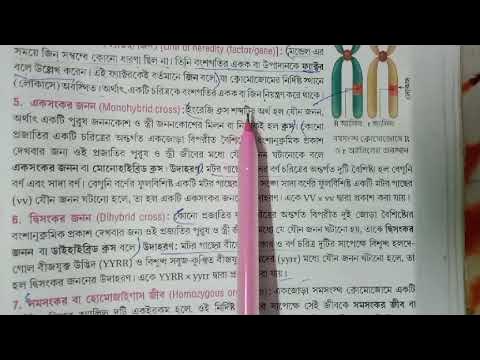 সময়ে জিন সম্বন্ধে কোনো ধারণা ছিল না। তিনি বংশগতির একক বা উপাদানকে ফ্যাক্টর
বলে উল্লেখ করেন। এই ফ্যাক্টরকেই বর্তমানে জিন বলে। যা ক্রোমোজোমের নির্দিষ্ট স্থানে
(লোকাসে) অবস্থিত। অর্থাৎ, একটি চরিত্রকে বংশগতির একক বা জিন নিয়ন্ত্রণ করে থাকে।
5. একসংকর জনন (Monohybrid cross) : ইংরেজি ক্রস শব্দটির অর্থ হল যৌন জনন,
অর্থাৎ একটি পুরুষ জননকোশ ও স্ত্রী জননকোশের মিলন বা হল ক্রস। কোনো
প্রজাতির একটি চরিত্রের অন্তর্গত একজোড়া বিপরীত বংশানুক্রমিক প্রকাশ
দেখবার জন্য ওই প্রজাতির পুরুষ ও স্ত্রী জীবের মধ্যে যৌন জনন ঘটানোকে বলে
একসংকর জনন বা মোনোহাইব্রিড ক্রস। উদাহরণ : মটর গাছের বর্ণ চরিত্রের অন্তর্গত দুটি বৈশিষ্ট্য হল বেগুনি
বর্ণ এবং সাদা বর্ণ। বেগুনি বর্ণের ফুলবিশিষ্ট একটি মটর গাছের সাদা বর্ণের ফুলবিশিষ্ট একটি মটর গাছের
(vv) যৌন জনন ঘটানো হলে, তা হল একটি একসংকর জনন। একে VV × vv দ্বারা প্রকাশ করা যায়।
6. দ্বিসংকর জনন (Dihybrid cross) : কোনো প্রজাতির অন্তর্গত বিপরীত দুই জোড়া বৈশিষ্ট্যের
বংশানুক্রমিক প্রকাশ দেখবার জন্য ওই প্রজাতির পুরুষ ও স্ত্রী মধ্যে যৌন জনন ঘটানো হয়, তাকে দ্বিসংকর
জনন বা ডাইহাইব্রিড ক্রস বলে। উদাহরণ : মটর গাছের বীজের ও বর্ণ চরিত্র দুটির সাপেক্ষে বিশুদ্ধ হলদে-
গোল বীজযুক্ত উদ্ভিদ (YYRR) ও বিশুদ্ধ সবুজ-কুঞ্চিত বীজযুক্ত (yyrr) মধ্যে যৌন জনন ঘটানো হলে, তা
হল দ্বিসংকর জননের উদাহরণ। একে YYRR × yyrr দ্বারা প্রকাশ করা যায়।
7. সমসংকর বা হোমোজাইগাস জীব (Homozygous : একজোড়া সমসংস্থ ক্রোমোজোমে একটি
দুটি একইরকম হলে, ওই নির্দিষ্ট সাপেক্ষে সেই জীবকে সমসংকর জীব বা